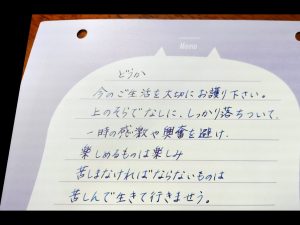 Memo
どうか
今のご生活を大切にお護り下さい。
上のそらでなしに、しっかり落ちついて、
一時の感激や興奮を避け、
楽しめるものは楽しみ
苦しまなければならないものは
苦しんで生きて行きませう。